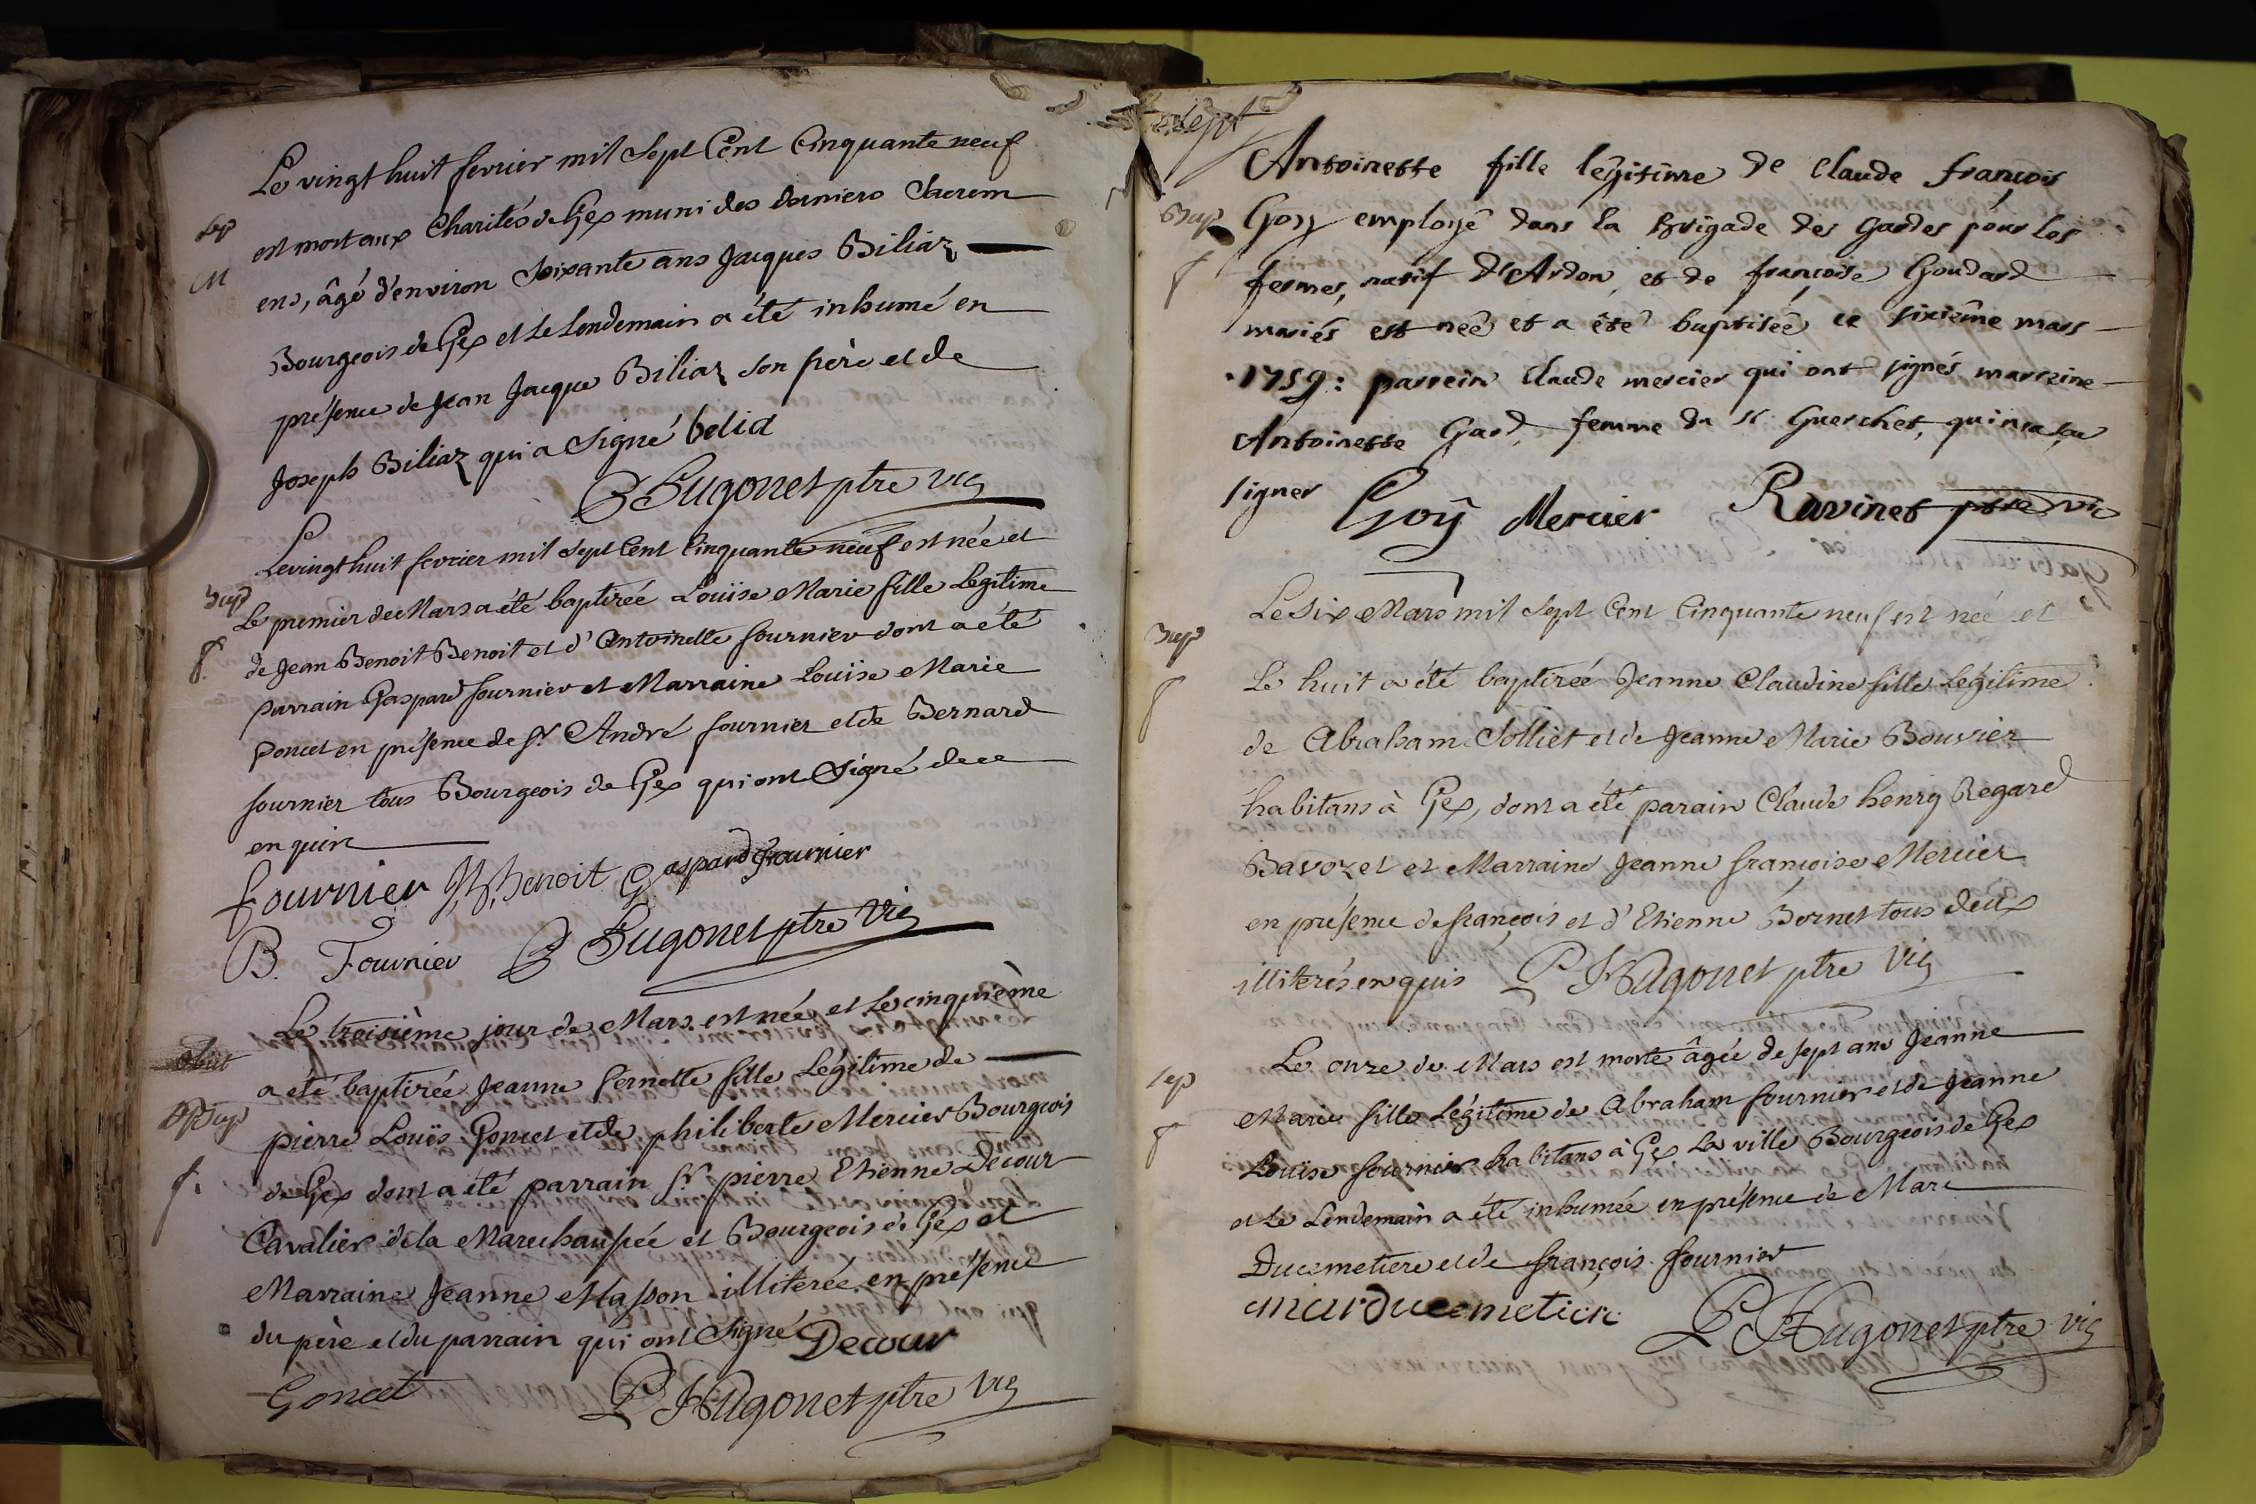 Le vingt huit fevrier mil Sept Cent Cinquante neuf
Sep
est mort aux Charités de Gex muni des derniers Sacrem
M
ens, âgé d'environ Soixante ans Jacques Biliaz
Bourgeois de Gex et Le Lendemain a été inhumé en
présence de Jean Jacque Biliaz Son frère et de
Joseph Biliaz qui a Signé belia
P Hugonet ptre vic
Le
Le vingt huit fevrier mil Sept Cent Cinquante neuf est née et
Bap
Le premier de Mars a été baptizée Louïse Marie fille Legitime
f.
de Jean Benoit Benoit et d'Antoinette fournier dont a été
parrain Gaspard fournier et Marraine Louïse Marie
Poncet en présence de Sr. André fournier et de Bernard
fournier tous Bourgeois de Gex qui ont Signé de ce
enquis
fournier J, B, Benoit Gaspard fournier
B. Fournier P Hugonet ptre vic
Le troisième jour de Mars est née et Le cinquième
obiit
a été baptizée Jeanne Pernette fille Légitime de
Bap
pierre Louïs Goncet et de philiberte Mercier Bourgeois
f.
de Gex dont a été parrain Sr. pierre Etienne Decour
Cavalier de la Marechaussée et Bourgeois de Gex et
Marraine Jeanne Masson illiterée en présence
du père et du parrain qui ont Signé Decour
Goncet P Hugonet ptre vic
Antoinette fille légitime de Claude françois
Bap
Goy employé dans la Brigade des gardes pour les
f
fermes, natif d'Ardon, et de françoise Goudard
mariés est neé et a été baptisée ce sixième mars
1759: parrein Claude mercier qui ont signés marreine
Antoinette Gard, femme du Sr. Guerchet, qui n'a su
signer Goÿ Mercier Ravinet ptre vic
Le Six Mars mil Sept Cent Cinquante neuf est née et
Bap
Le huit a été baptizée Jeanne Claudine fille Légitime
f
de Abraham Solliet et de Jeanne Marie Bouvier
habitans à Gex, dont a été parain Claude henry Regard
Bavozet et Marraine Jeanne françoise Mercier
en présence de françois et d'Etienne Bornet tous deux
illiterés enquis P Hugonet ptre vic
Le onze de Mars est morte âgée de sept ans Jeanne
Sep
Marie fille Légitime de Abraham fournier et de Jeanne
f
Louïse fournier habitans à Gex La ville Bourgeois de Gex
et Le Lendemain a été inhumée en présence de Marc
Ducemetiere et de françois fournier
marducemetiere P Hugonet ptre vic